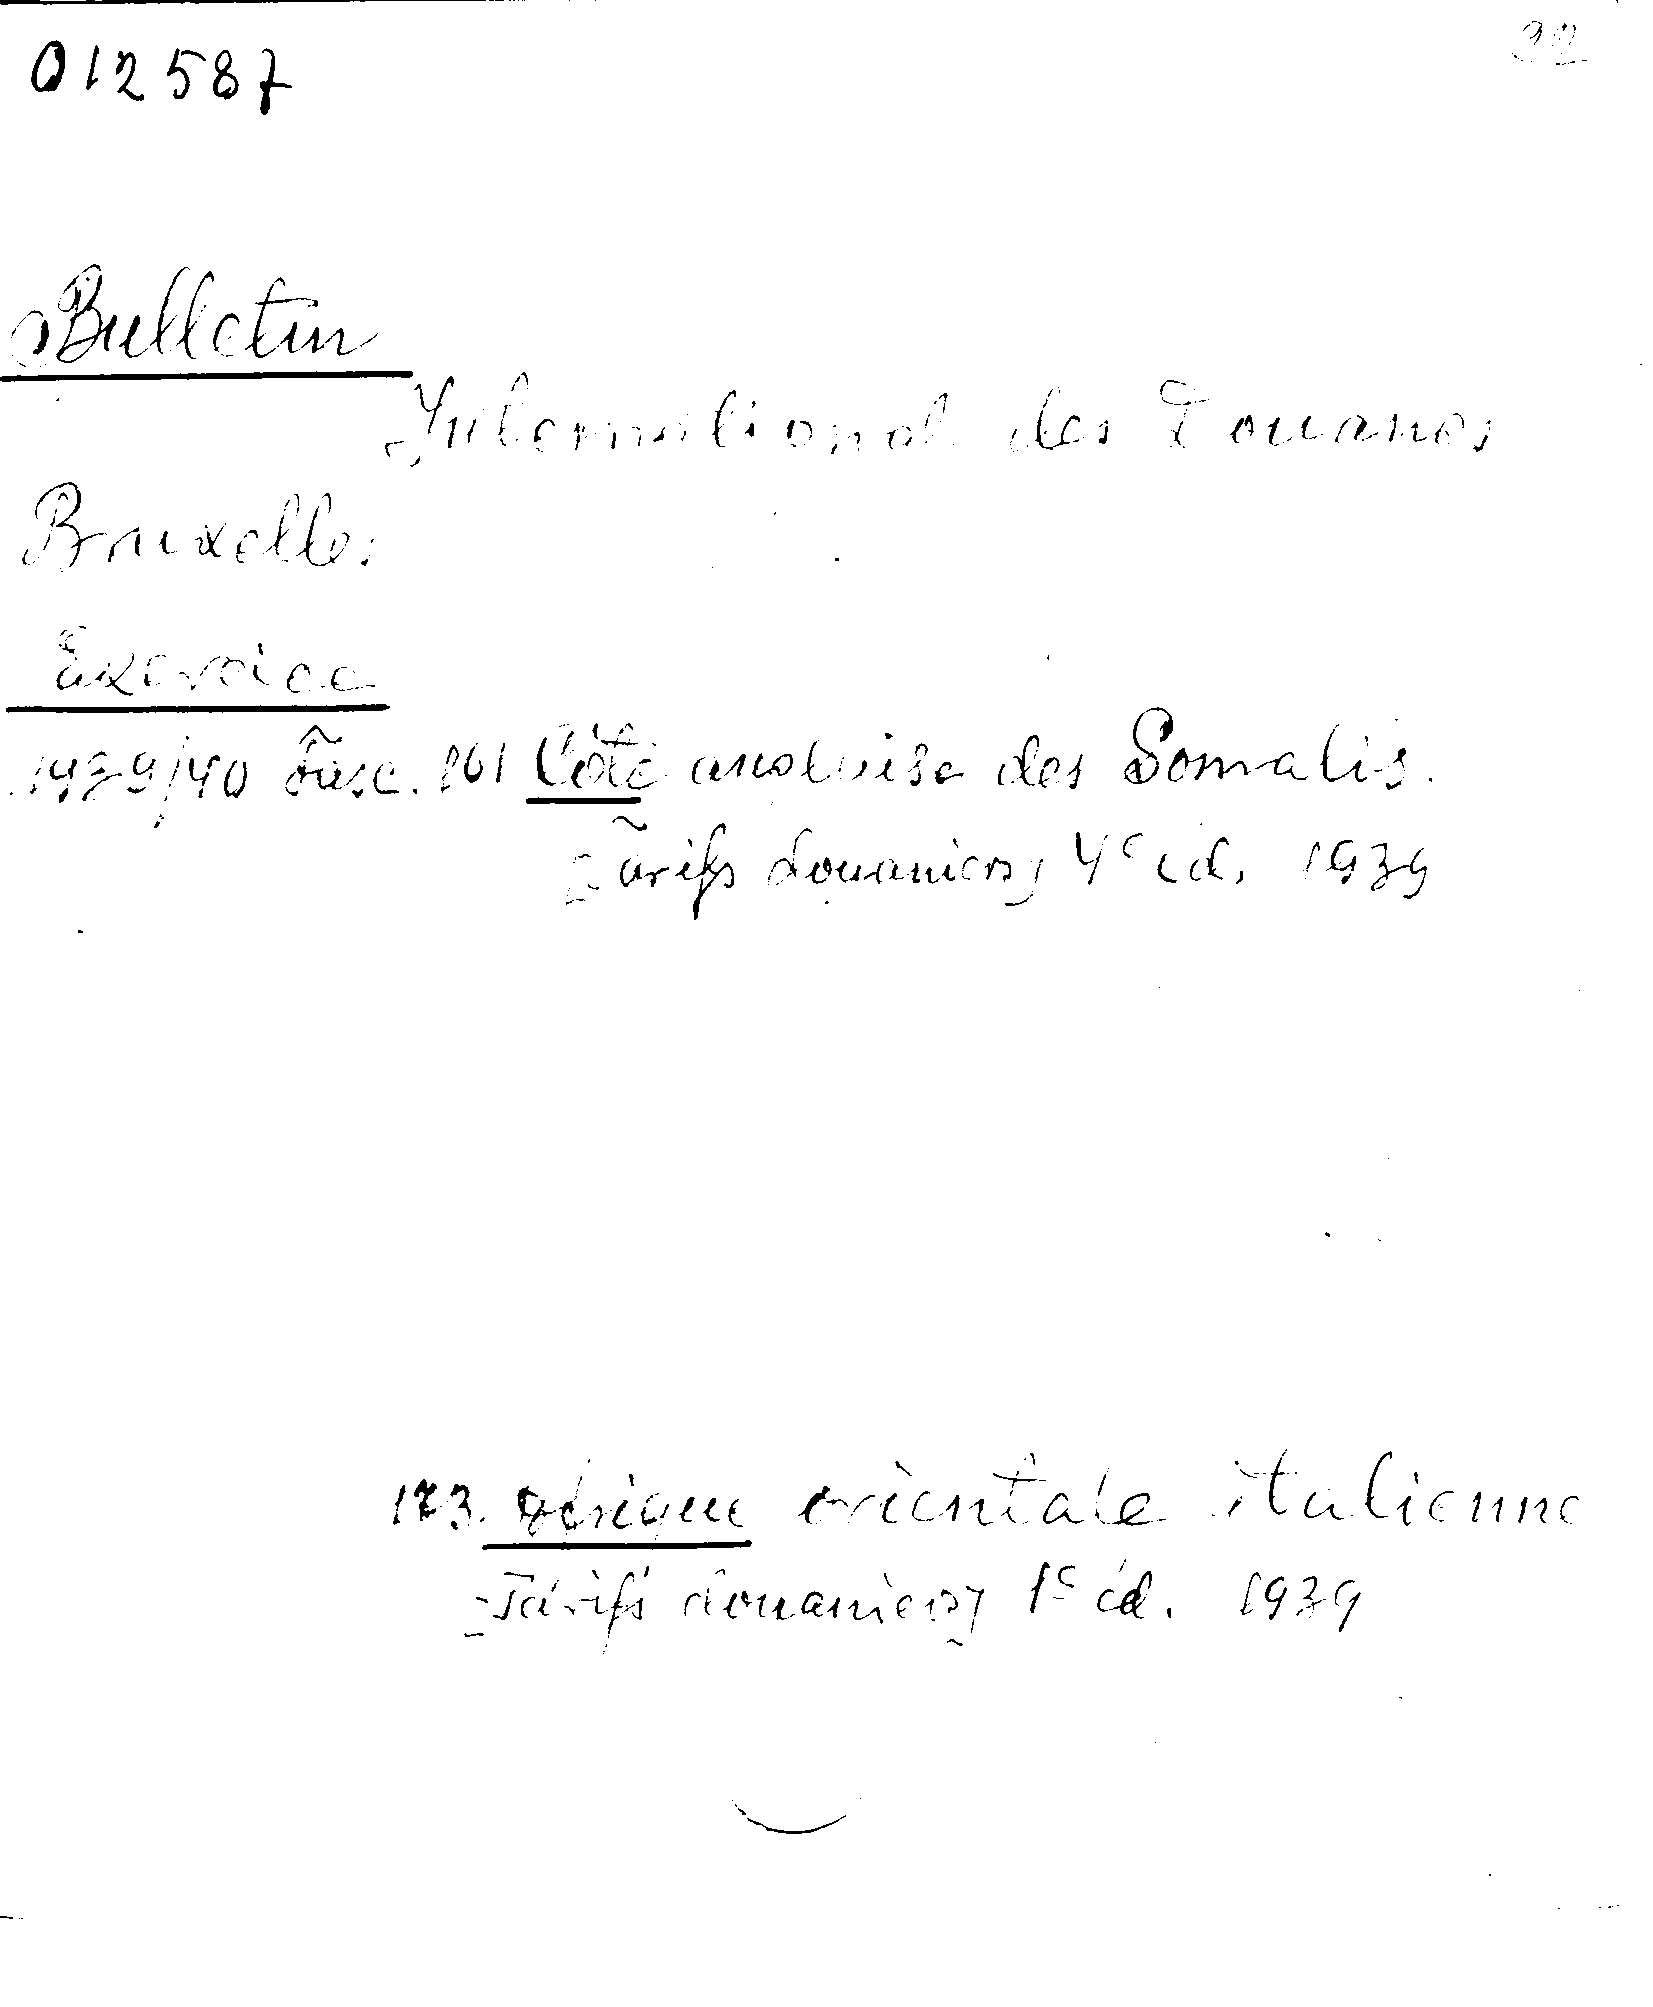 012587
Bulletin
International des Douanes
Bruxelles
Exercice
1939/40 Fasc. 161 Côte des Somalis.
Tarifs douaniers 4e éd. 1939
173. Afrique orientale italienne
Tarifs douaniers 1e éd. 1939